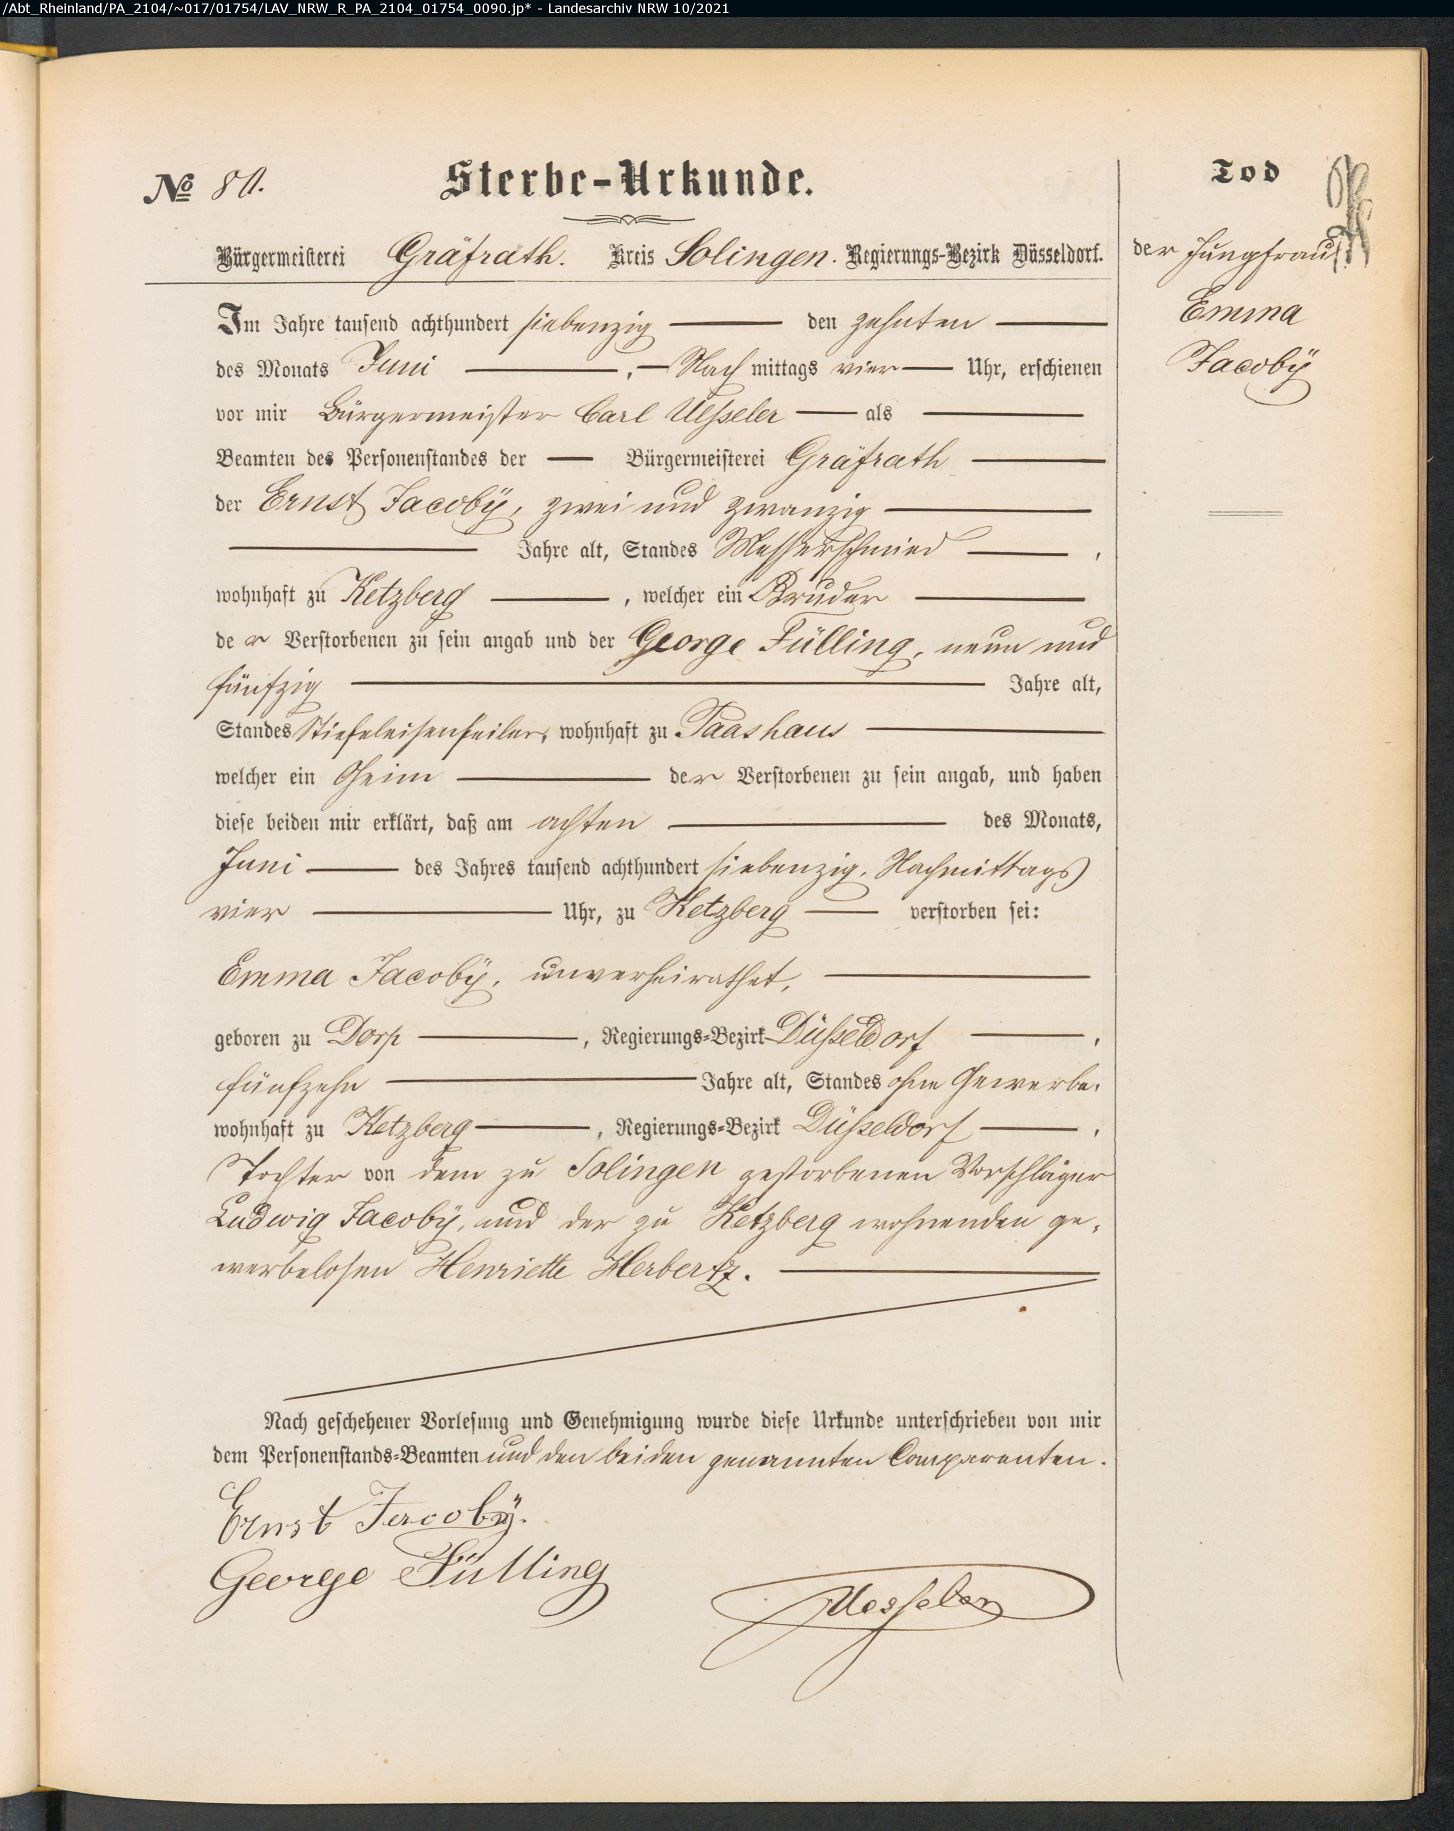 /Abt_Rheinland/PA_2104/~017/01754/LAV_NRW_R_PA_2104_01754_0090.jp* - Landesarchiv NRW 10/2021
No 80.
Sterbe-Urkunde.
Bürgermeisterei Gräfrath. Kreis Solingen. Regierungs-Bezirk Düsseldorf.
Im Jahre tausend achthundert siebenzig den zehnten
des Monats Juni, Nach mittags vier Uhr, erschienen
vor mir Bürgermeister Carl Uesseler als
Beamten des Personenstandes der Bürgermeisterei Gräfrath
der Ernst Jacobÿ, zwei und zwanzig
Jahre alt, Standes Messerschmied,
wohnhaft zu Ketzberg, welcher ein Bruder
de r Verstorbenen zu sein angab und der George Fülling, neun und
fünfzig Jahre alt,
Standes Stiefeleisenfeiler, wohnhaft zu Paashaus
welcher ein Oheim der Verstorbenen zu sein angab, und haben
diese beiden mir erklärt, daß am achten des Monats,
Juni des Jahres tausend achthundert siebenzig, Nachmittags
vier Uhr, zu Ketzberg verstorben sei:
Emma Jacobÿ, unverheirathet,
geboren zu Dorp, Regierungs-Bezirk Düsseldorf,
fünfzehn Jahre alt, Standes ohne Gewerbe,
wohnhaft zu Ketzberg, Regierungs-Bezirk Düsseldorf,
Tochter von dem zu Solingen gestorbenen Vorschläger
Ludwig Jacobÿ, und der zu Ketzberg wohnenden ge-
werbelosen Henriette Herbertz.
Nach geschehener Vorlesung und Genehmigung wurde diese Urkunde unterschrieben von mir
dem Personenstands-Beamten und den beiden genannten Comparenten.
Ernst Jacobÿ.
George Fülling
Uesseler
Tod
der Jungfrau
Emma
Jacobÿ